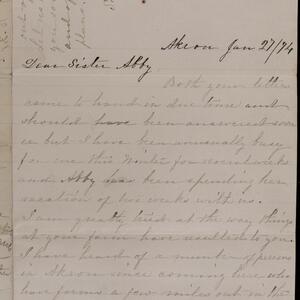 Akron Jan 27/74
Dear Sister Abby,
Both your letters
came to hand in due time and
should have been answered soon
er but I have been unusually busy
for me this Winter for several weeks
and Abby has been spending her
vacation of two weeks with us.
I am greatly tried at the way things
at your farm have resulted to you.
I have heard of a number of persons
in Akron since coming here who
have farms a few miles out in the